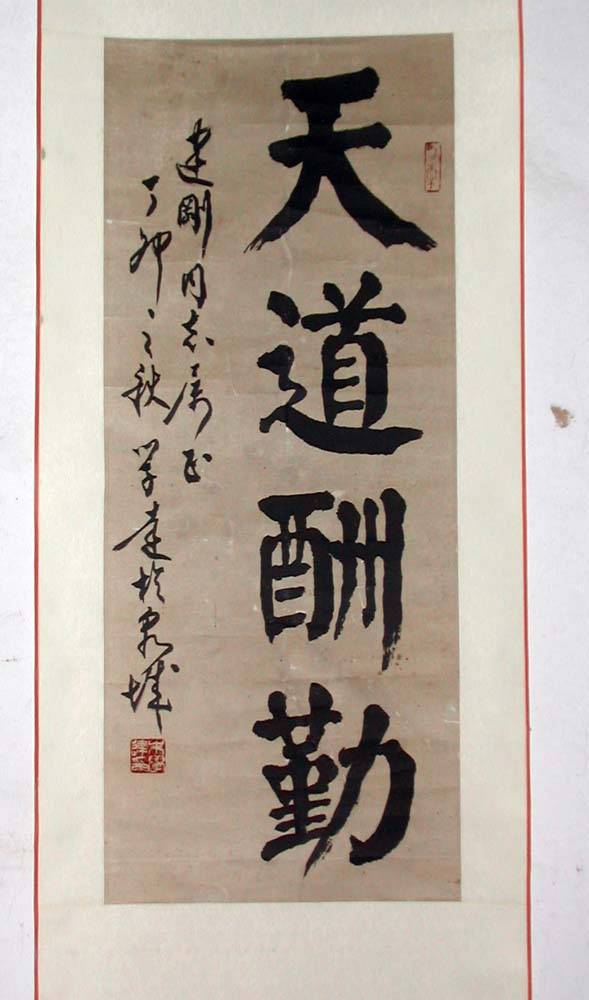 天道酬勤
建剛同志属正
丁卯之秋学達於泉城